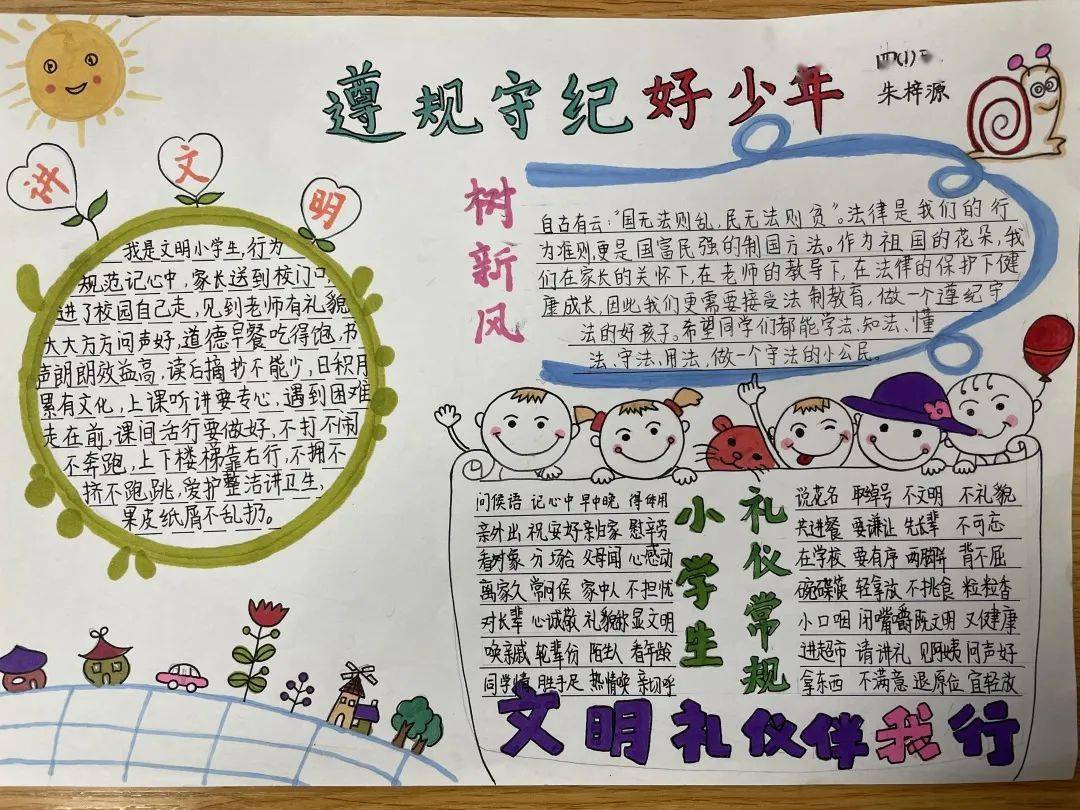 遵规守纪好少年
四(1)
朱梓源
讲文明
我是文明小学生,行为
规范记心中,家长送到校门口,
进了校园自己走,见到老师有礼貌
大大方方问声好,道德早餐吃得饱,书
声朗朗效益高,读后摘抄不能少,日积月
累有文化,上课听讲要专心,遇到困难
走在前,课间活行要做好,不打不闹
不奔跑,上下楼梯靠右行,不拥不
挤不跑跳,爱护整洁讲卫生,
果皮纸屑不乱扔。
树新风
自古有云:“国无法则乱,民无法则贫”。法律是我们的行
为准则,更是国富民强的制国方法。作为祖国的花朵,我
们在家长的关怀下,在老师的教导下,在法律的保护下健
康成长,因此我们更需要接受法制教育,做一个遵纪守
法的好孩子。希望同学们都能学法、知法、懂
法、守法、用法,做一个守法的小公民。
小学生
礼仪常规
问候语 记心中 早中晚 得体用
亲外出 祝安好 亲归家 慰辛劳
看对象 分场合 父母闻 心感动
离家久 常问候 家中人 不担忧
对长辈 心诚敬 礼貌称 显文明
唤亲戚 轮辈份 陌生人 看年龄
同学情 胜手足 热情唤 亲切呼
说花名 取绰号 不文明 不礼貌
共进餐 要谦让 先长辈 不可忘
在学校 要有序 两脚并 背不屈
碗碟筷 轻拿放 不挑食 粒粒香
小口咽 闭嘴嚼 既文明 又健康
进超市 请讲礼 见阿姨 问声好
拿东西 不满意 退原位 宜轻放
文明礼仪伴我行